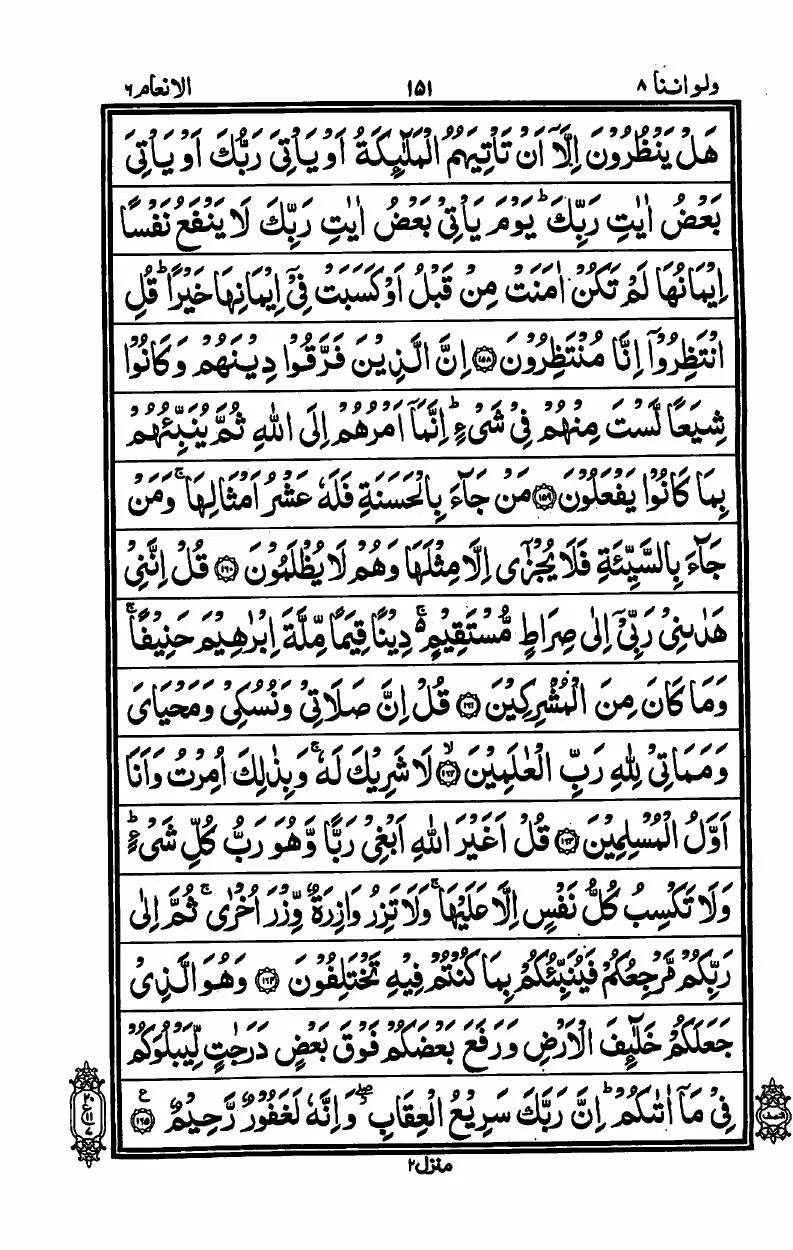 ولو اننا ٨ ١۵١ الانعام ٦
هَلْ يَنْظُرُوْنَ اِلَّاۤ اَنْ تَاْتِيَهُمُ الْمَلٰٓئِكَةُ اَوْ يَاْتِيَ رَبُّكَ اَوْ يَاْتِيَ
بَعْضُ اٰيٰتِ رَبِّكَ ؕ يَوْمَ يَاْتِيْ بَعْضُ اٰيٰتِ رَبِّكَ لَا يَنْفَعُ نَفْسًا
اِيْمَانُهَا لَمْ تَكُنْ اٰمَنَتْ مِنْ قَبْلُ اَوْ كَسَبَتْ فِيْۤ اِيْمَانِهَا خَيْرًا ؕ قُلِ
انْتَظِرُوْۤا اِنَّا مُنْتَظِرُوْنَ ﴿١۵٨﴾ اِنَّ الَّذِيْنَ فَرَّقُوْا دِيْنَهُمْ وَكَانُوْا
شِيَعًا لَّسْتَ مِنْهُمْ فِيْ شَيْءٍ ؕ اِنَّمَاۤ اَمْرُهُمْ اِلَى اللّٰهِ ثُمَّ يُنَبِّئُهُمْ
بِمَا كَانُوْا يَفْعَلُوْنَ ﴿١۵٩﴾ مَنْ جَآءَ بِالْحَسَنَةِ فَلَهٗ عَشْرُ اَمْثَالِهَا ۚ وَمَنْ
جَآءَ بِالسَّيِّئَةِ فَلَا يُجْزٰۤى اِلَّا مِثْلَهَا وَهُمْ لَا يُظْلَمُوْنَ ﴿١٦٠﴾ قُلْ اِنَّنِيْ
هَدٰىنِيْ رَبِّيْۤ اِلٰى صِرَاطٍ مُّسْتَقِيْمٍ ۚ دِيْنًا قِيَمًا مِّلَّةَ اِبْرٰهِيْمَ حَنِيْفًا ۚ
وَمَا كَانَ مِنَ الْمُشْرِكِيْنَ ﴿١٦١﴾ قُلْ اِنَّ صَلَاتِيْ وَنُسُكِيْ وَمَحْيَايَ
وَمَمَاتِيْ لِلّٰهِ رَبِّ الْعٰلَمِيْنَ ﴿١٦٢﴾ۙ لَا شَرِيْكَ لَهٗ ۚ وَبِذٰلِكَ اُمِرْتُ وَاَنَا
اَوَّلُ الْمُسْلِمِيْنَ ﴿١٦٣﴾ قُلْ اَغَيْرَ اللّٰهِ اَبْغِيْ رَبًّا وَّهُوَ رَبُّ كُلِّ شَيْءٍ ؕ
وَلَا تَكْسِبُ كُلُّ نَفْسٍ اِلَّا عَلَيْهَا ۚ وَلَا تَزِرُ وَازِرَةٌ وِّزْرَ اُخْرٰى ۚ ثُمَّ اِلٰى
رَبِّكُمْ مَّرْجِعُكُمْ فَيُنَبِّئُكُمْ بِمَا كُنْتُمْ فِيْهِ تَخْتَلِفُوْنَ ﴿١٦٤﴾ وَهُوَ الَّذِيْ
جَعَلَكُمْ خَلٰٓئِفَ الْاَرْضِ وَرَفَعَ بَعْضَكُمْ فَوْقَ بَعْضٍ دَرَجٰتٍ لِّيَبْلُوَكُمْ
فِيْ مَاۤ اٰتٰىكُمْ ؕ اِنَّ رَبَّكَ سَرِيْعُ الْعِقَابِ ۖ وَاِنَّهٗ لَغَفُوْرٌ رَّحِيْمٌ ﴿١٦۵﴾ ع
النصف
منزل ٢